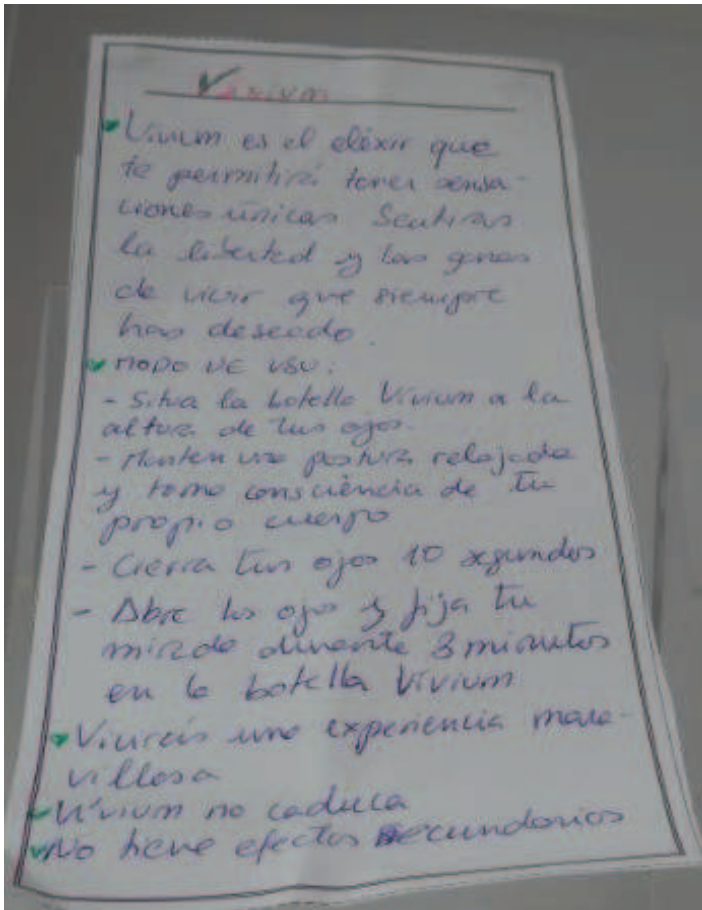 Vivium
Vivium es el elexir que
te permitirá tener sensa-
ciones únicas Sentiras
la libertad y las ganas
de vivir que siempre
has deseado.
MODO DE USO:
- Situa la botella Vivium a la
altura de tus ojos.
- Manten una postura relajada
y toma consciència de tu
propio cuerpo
- Cierra tus ojos 10 segundos
- Abre los ojos y fija tu
mirada durante 3 minutos
en la botella Vivium
Vivireis una experiencia mara-
villosa
Vivium no caduca
No tiene efectos secundarios